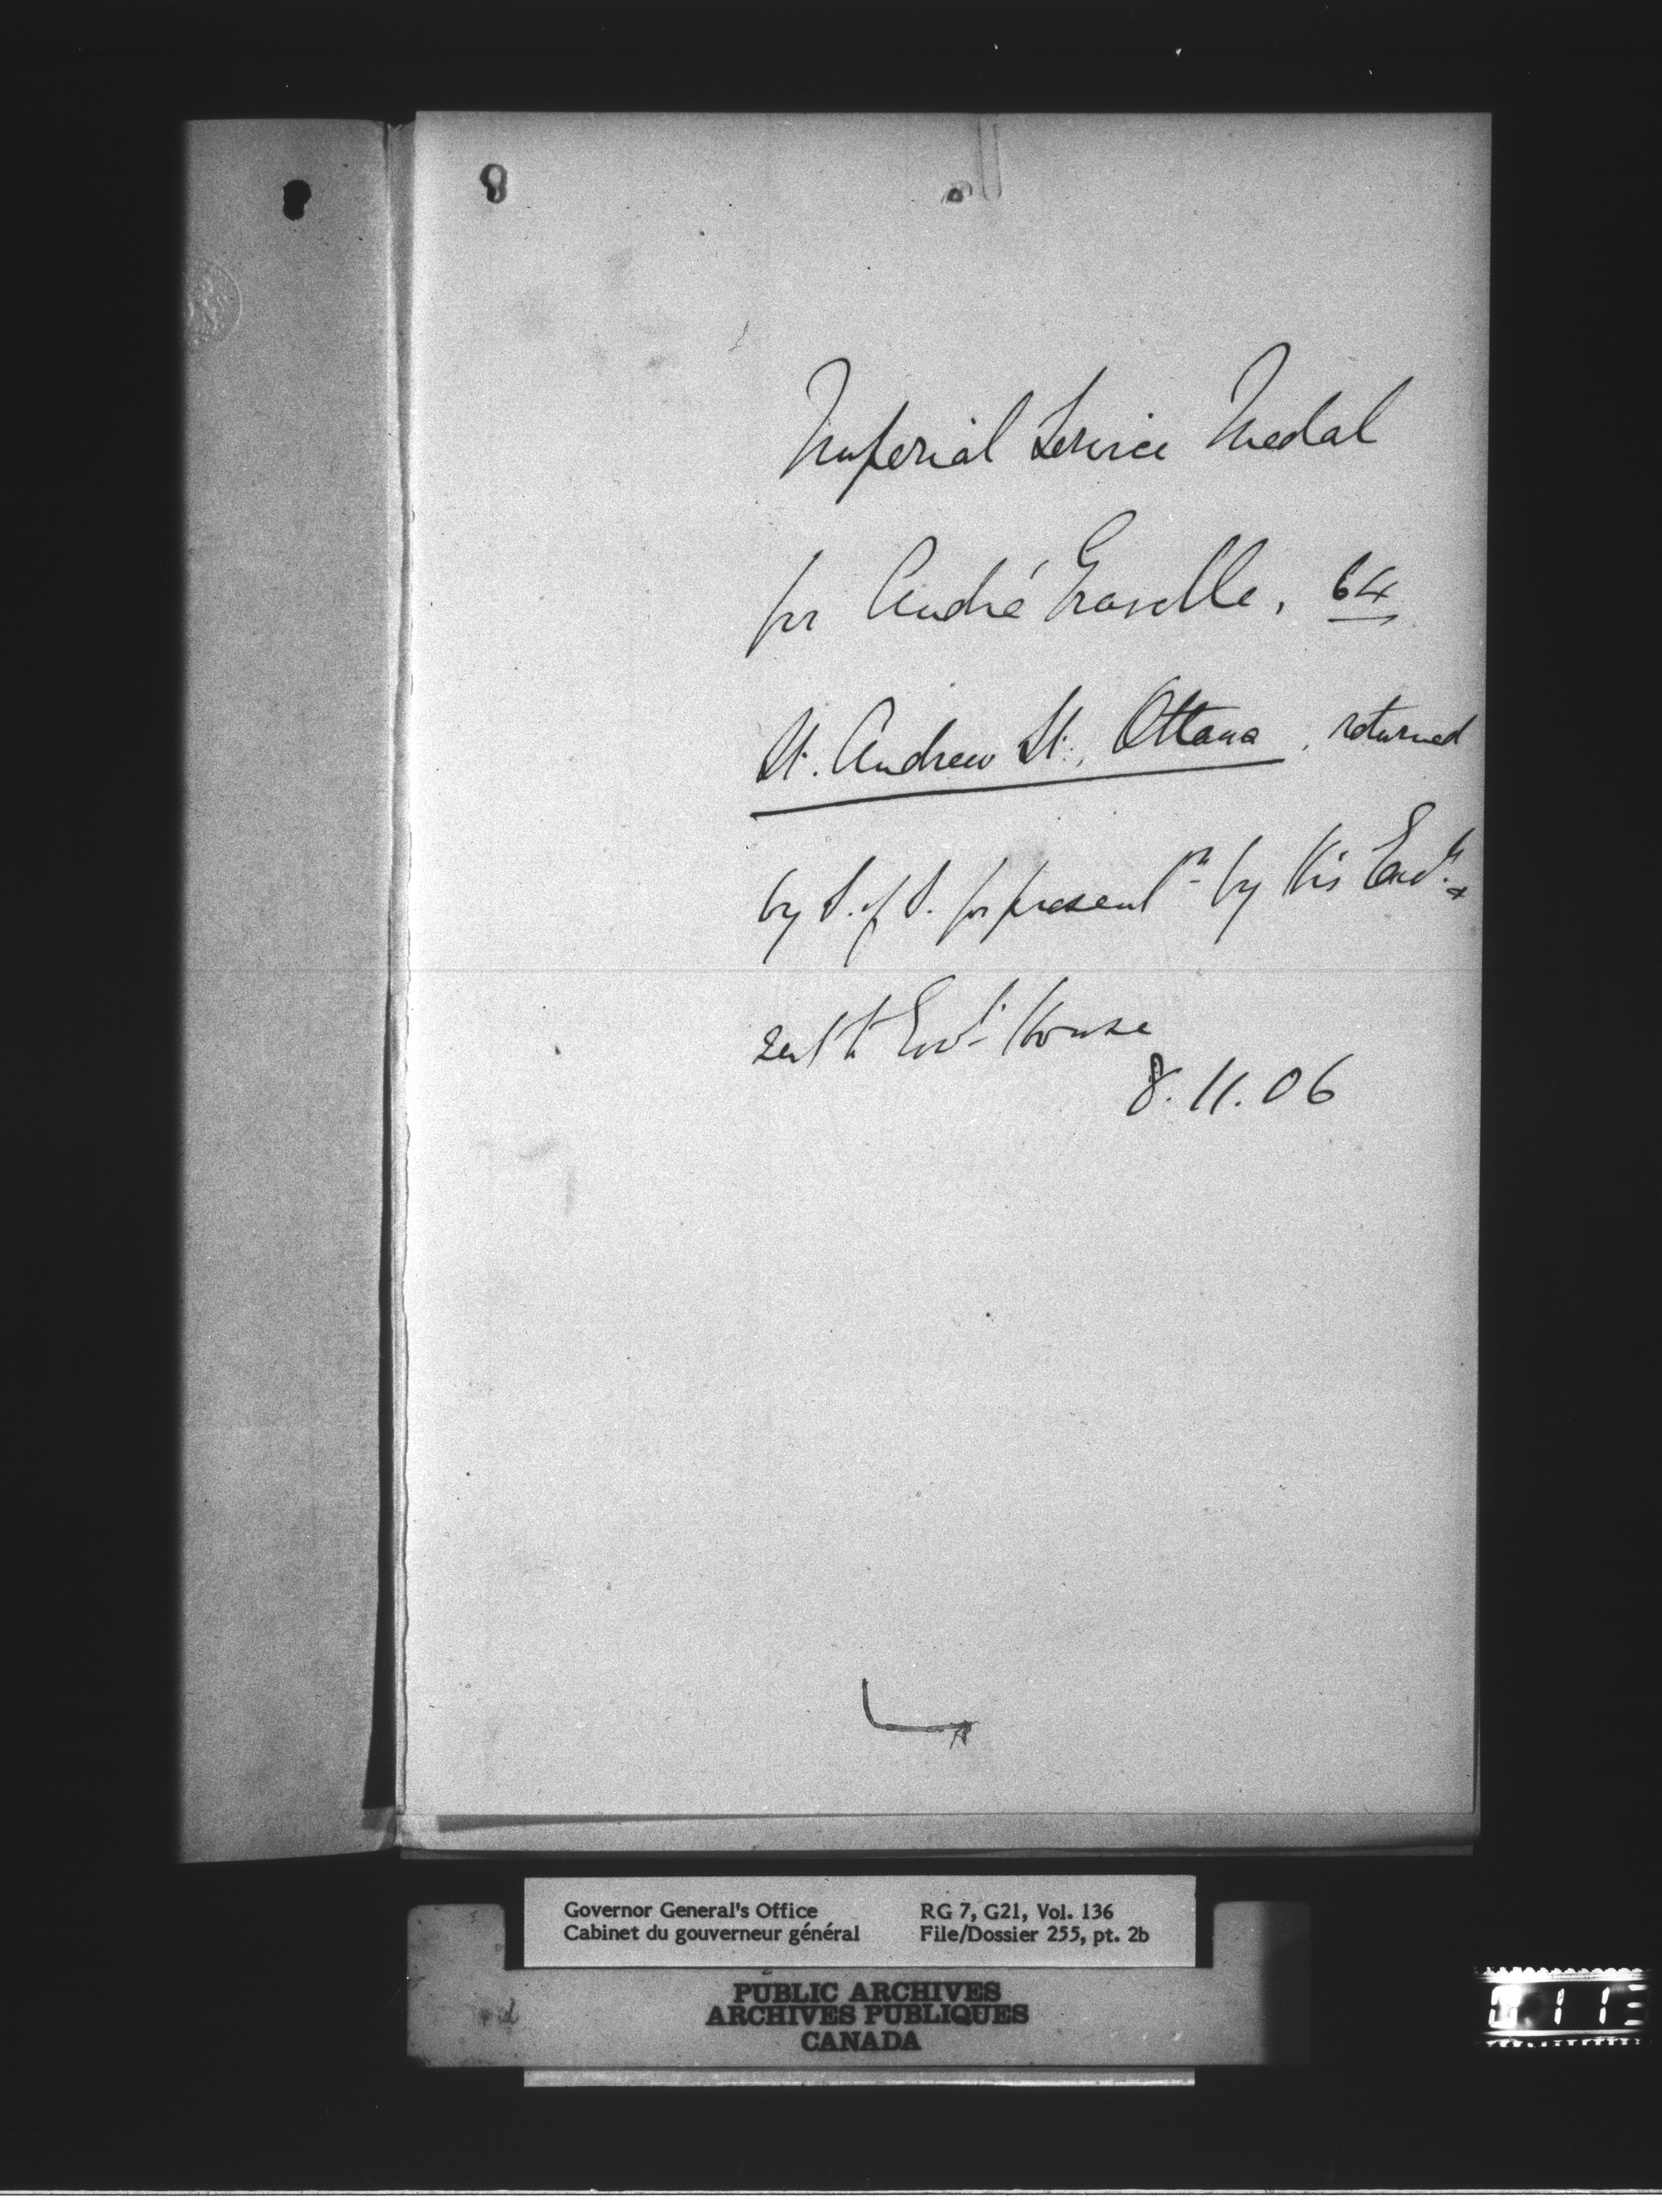 Imperial Service Medal
for André Gravelle, 64
St. Andrew St., Ottawa, returned
by S. of S. for presentn by His Excy &
sent to Govt House
8.11.06
Governor General's Office
Cabinet du gouverneur général
RG 7, G21, Vol. 136
File/Dossier 255, pt. 2b
PUBLIC ARCHIVES
ARCHIVES PUBLIQUES
CANADA